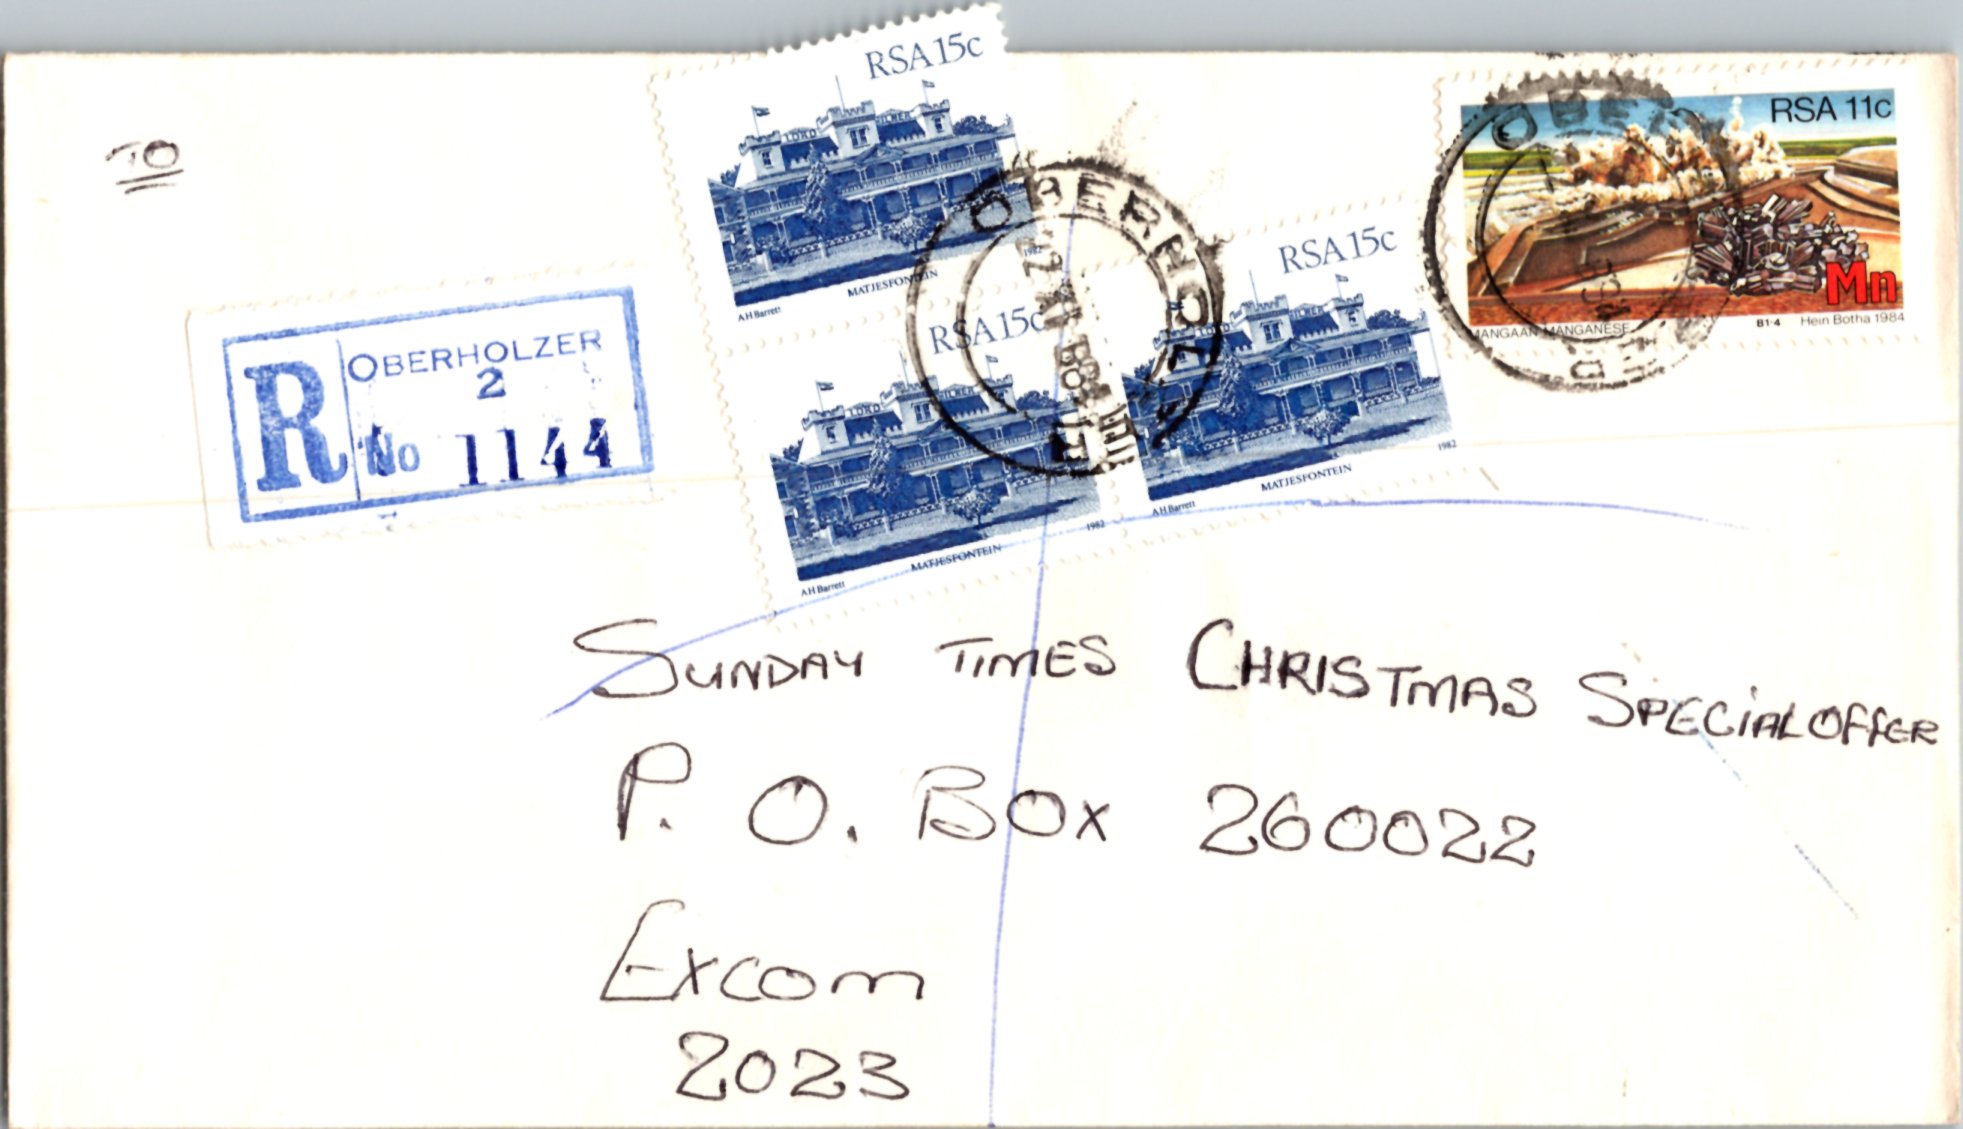 TO
RSA 15c
LORD MILNER
1982
MATJESFONTEIN
A H Barrett
RSA 15c
LORD MILNER
1982
MATJESFONTEIN
A H Barrett
RSA 15c
LORD MILNER
1982
MATJESFONTEIN
A H Barrett
OBERHOL
RSA 11c
Mn
MANGAAN MANGANESE
B1·4 Hein Botha 1984
OBER
R
OBERHOLZER
2
No 1144
SUNDAY TIMES CHRISTMAS SPECIAL OFFER
P. O. BOX 260022
EXCOM
2023